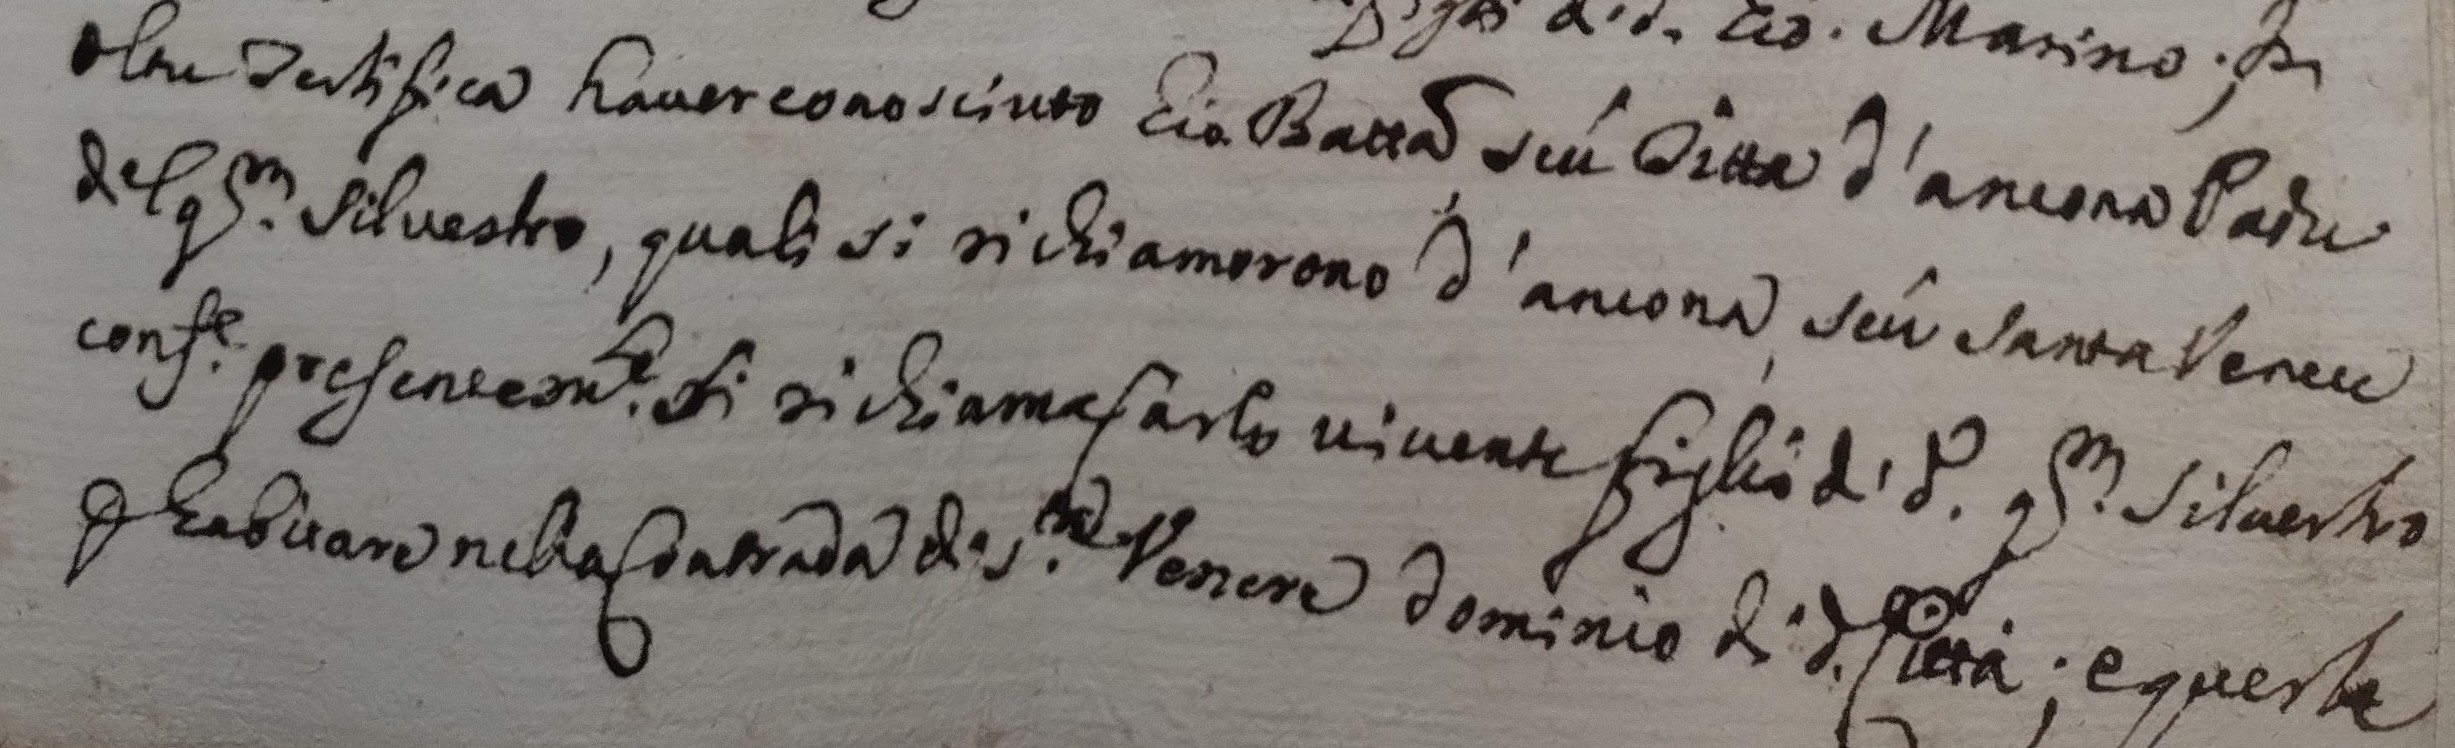 figli di d. Gio. Marino. In
oltre testifica haver conosciuto Gio. Batta seù Titta d'ancona Padre
del qm. Silvestro, quali si richiamorono d'ancona, seù Santa Venere
conf.e presentem.e si richiama Carlo vivente figlio di d. qm. Silvestro
p habitare nella Contrada di S.ta Venere dominio di d. Città; e queste